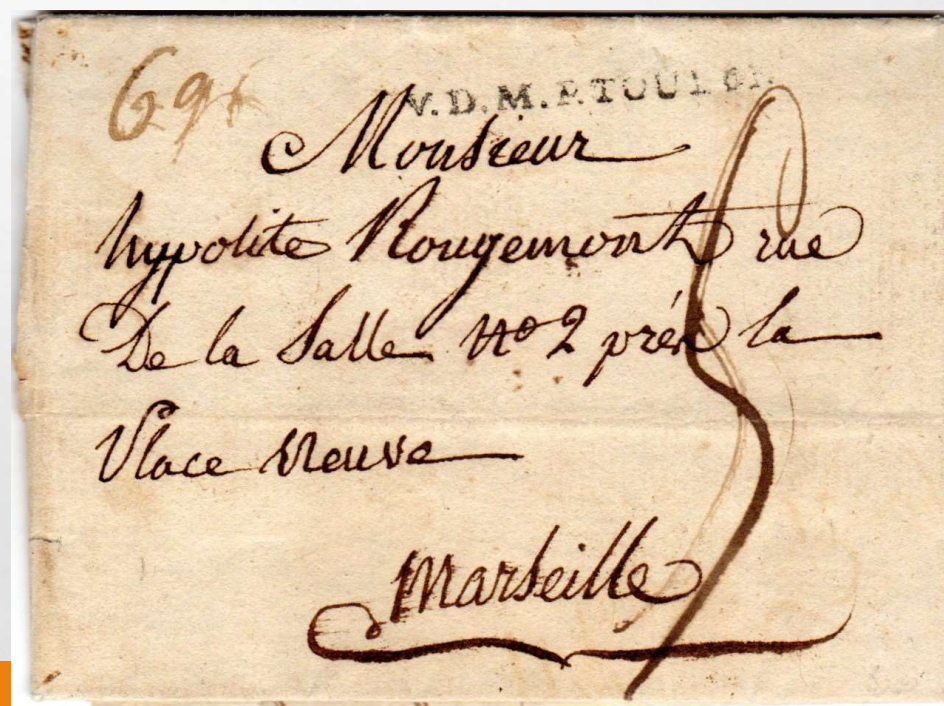 V.D.M. F. TOULON
Monsieur
hypolite Rougemont rue
De la Salle No 2 prés la
Place neuve
Marseille